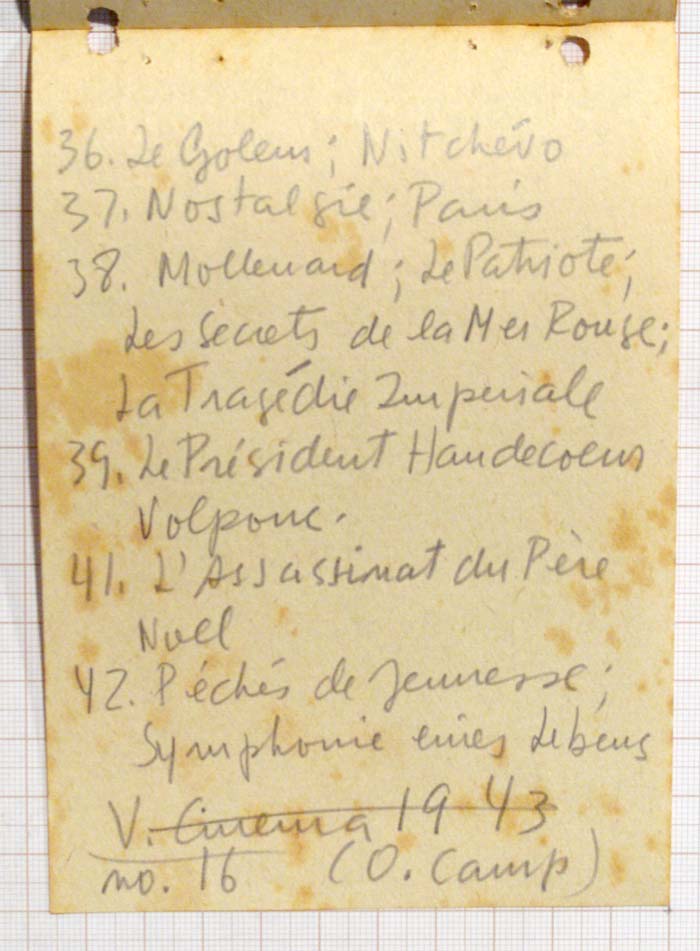 36. Le Golem; Nitchévo
37. Nostalgie; Paris
38. Mollenard; Le Patriote;
Les Secrets de la Mer Rouge;
La Tragédie Imperiale
39. Le Président Haudecoeur
Volpone.
41. L'Assassinat du Père
Noel
42. Péchés de Jeunesse;
Symphonie eines Lebens
V. Cinema 1943
no. 16 (O. Camp)